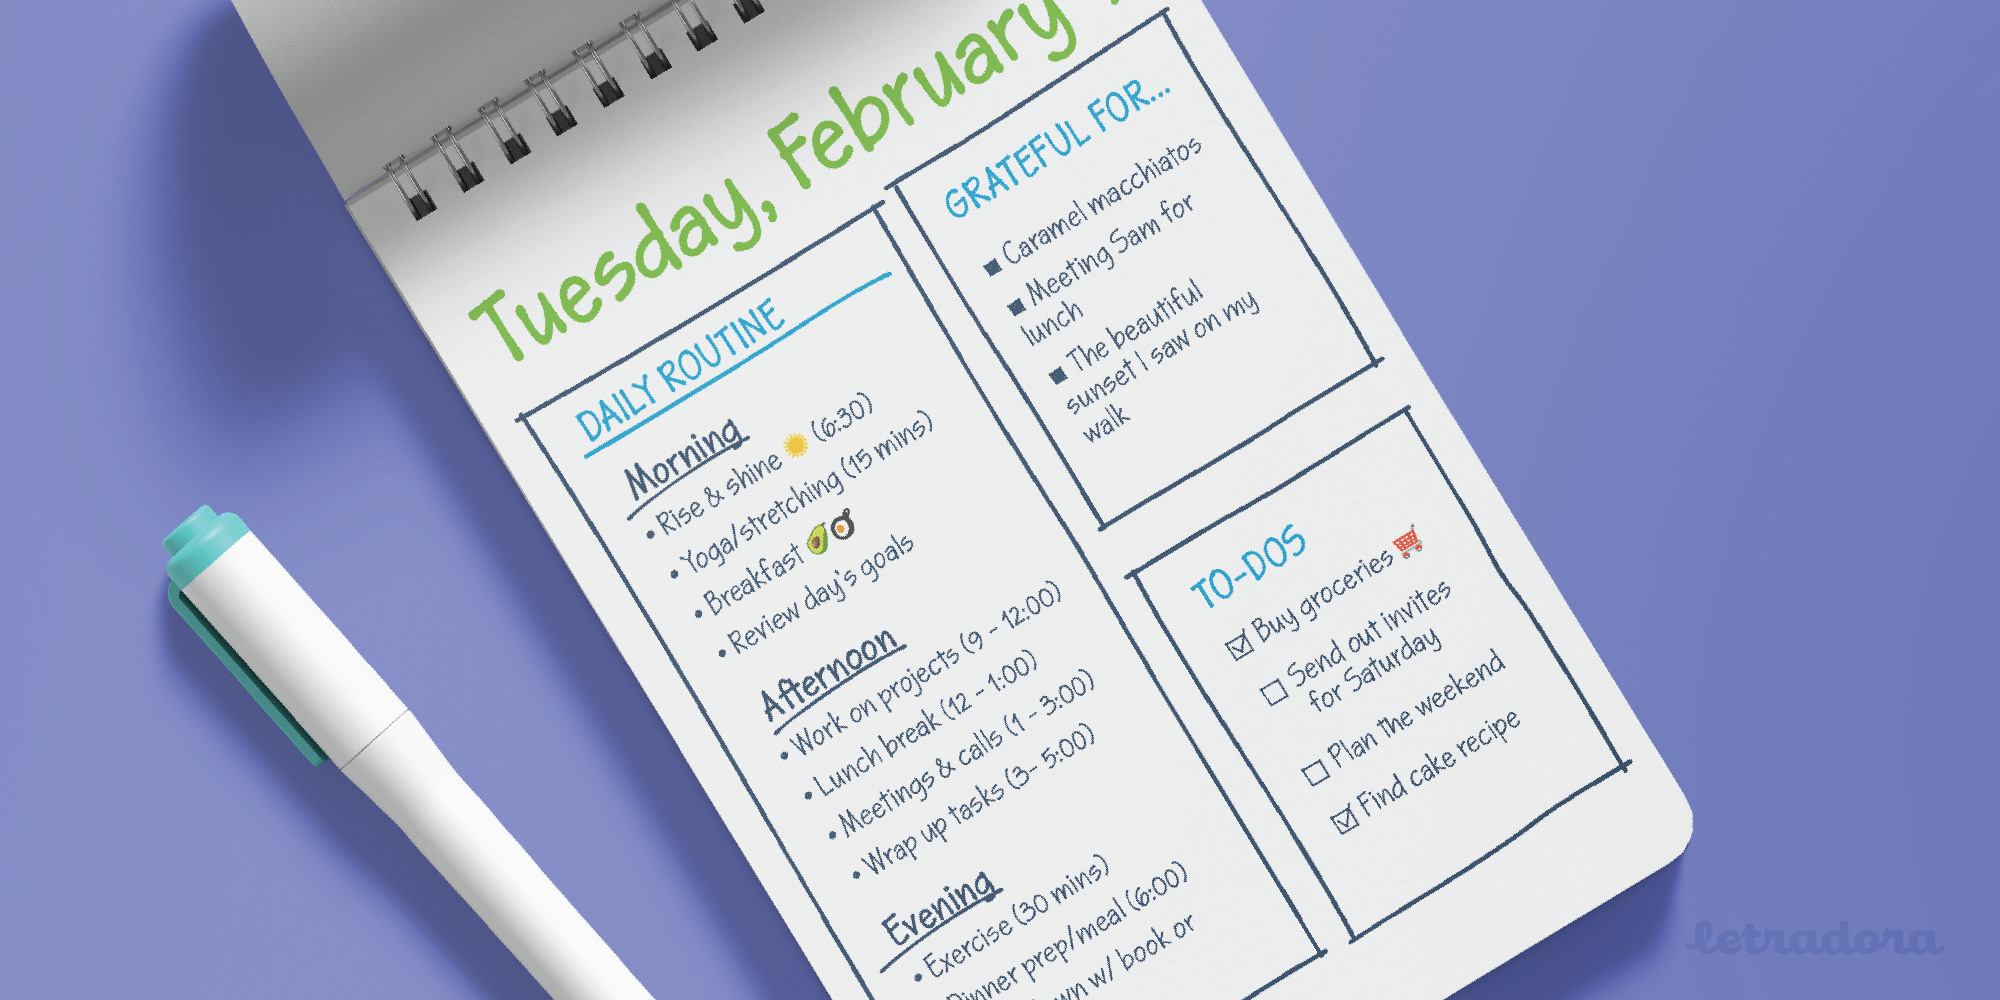 Tuesday, February
DAILY ROUTINE
Morning
• Rise & shine ☀️ (6:30)
• Yoga/stretching (15 mins)
• Breakfast 🥑🍳
• Review day's goals
Afternoon
• Work on projects (9 - 12:00)
• Lunch break (12 - 1:00)
• Meetings & calls (1 - 3:00)
• Wrap up tasks (3- 5:00)
Evening
• Exercise (30 mins)
Dinner prep/meal (6:00)
w/ book or
GRATEFUL FOR...
■ Caramel macchiatos
■ Meeting Sam for
lunch
■ The beautiful
sunset I saw on my
walk
TO-DOS
☑ Buy groceries 🛒
☐ Send out invites
for Saturday
☐ Plan the weekend
☑ Find cake recipe
letradora